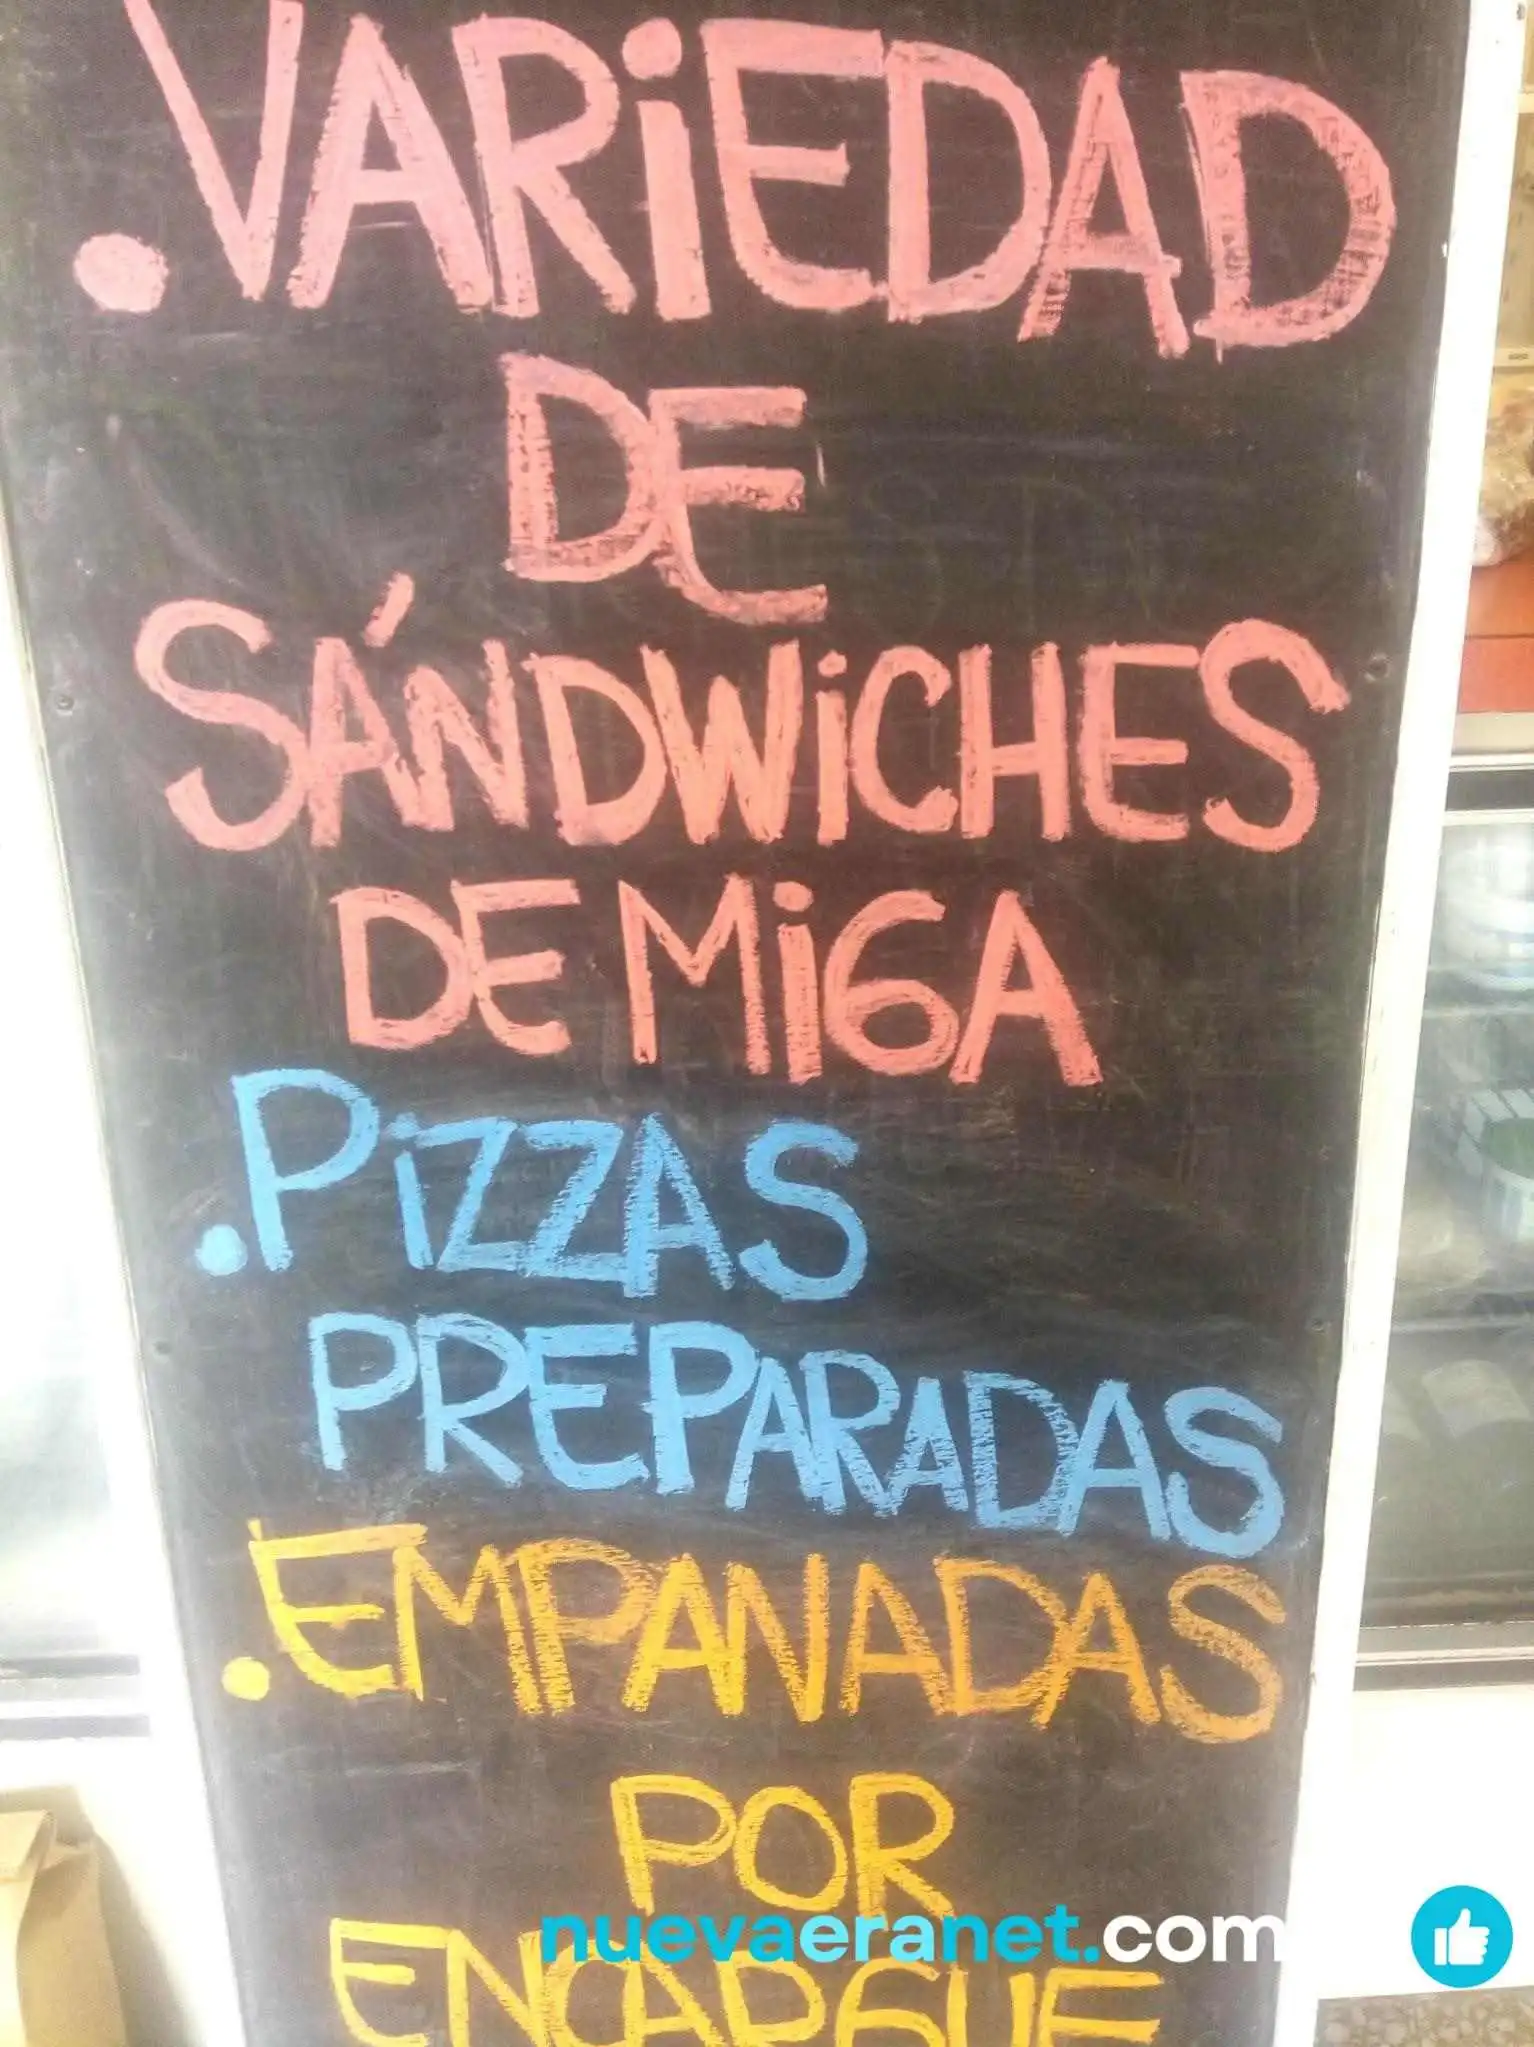 .VARiEDAD
DE
SÁNDWiCHES
DE MiGA
.PiZZAS
PREPARADAS
.EMPANADAS
POR
nuevaeranet.com
ENCARGUE